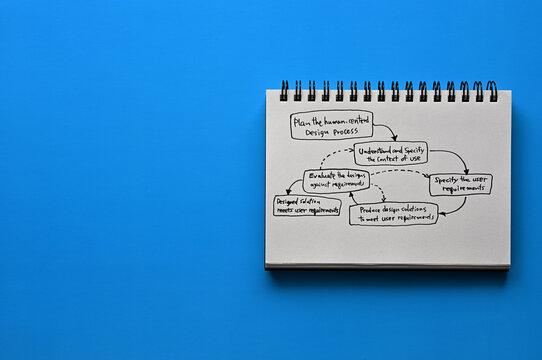 Plan the human-centered
Design Process
Understand and Specify
the Context of use
Specify the user
requirements
Produce design solutions
to meet user requirements
Evaluate the designs
against requirements
Designed solution
meets user requirements